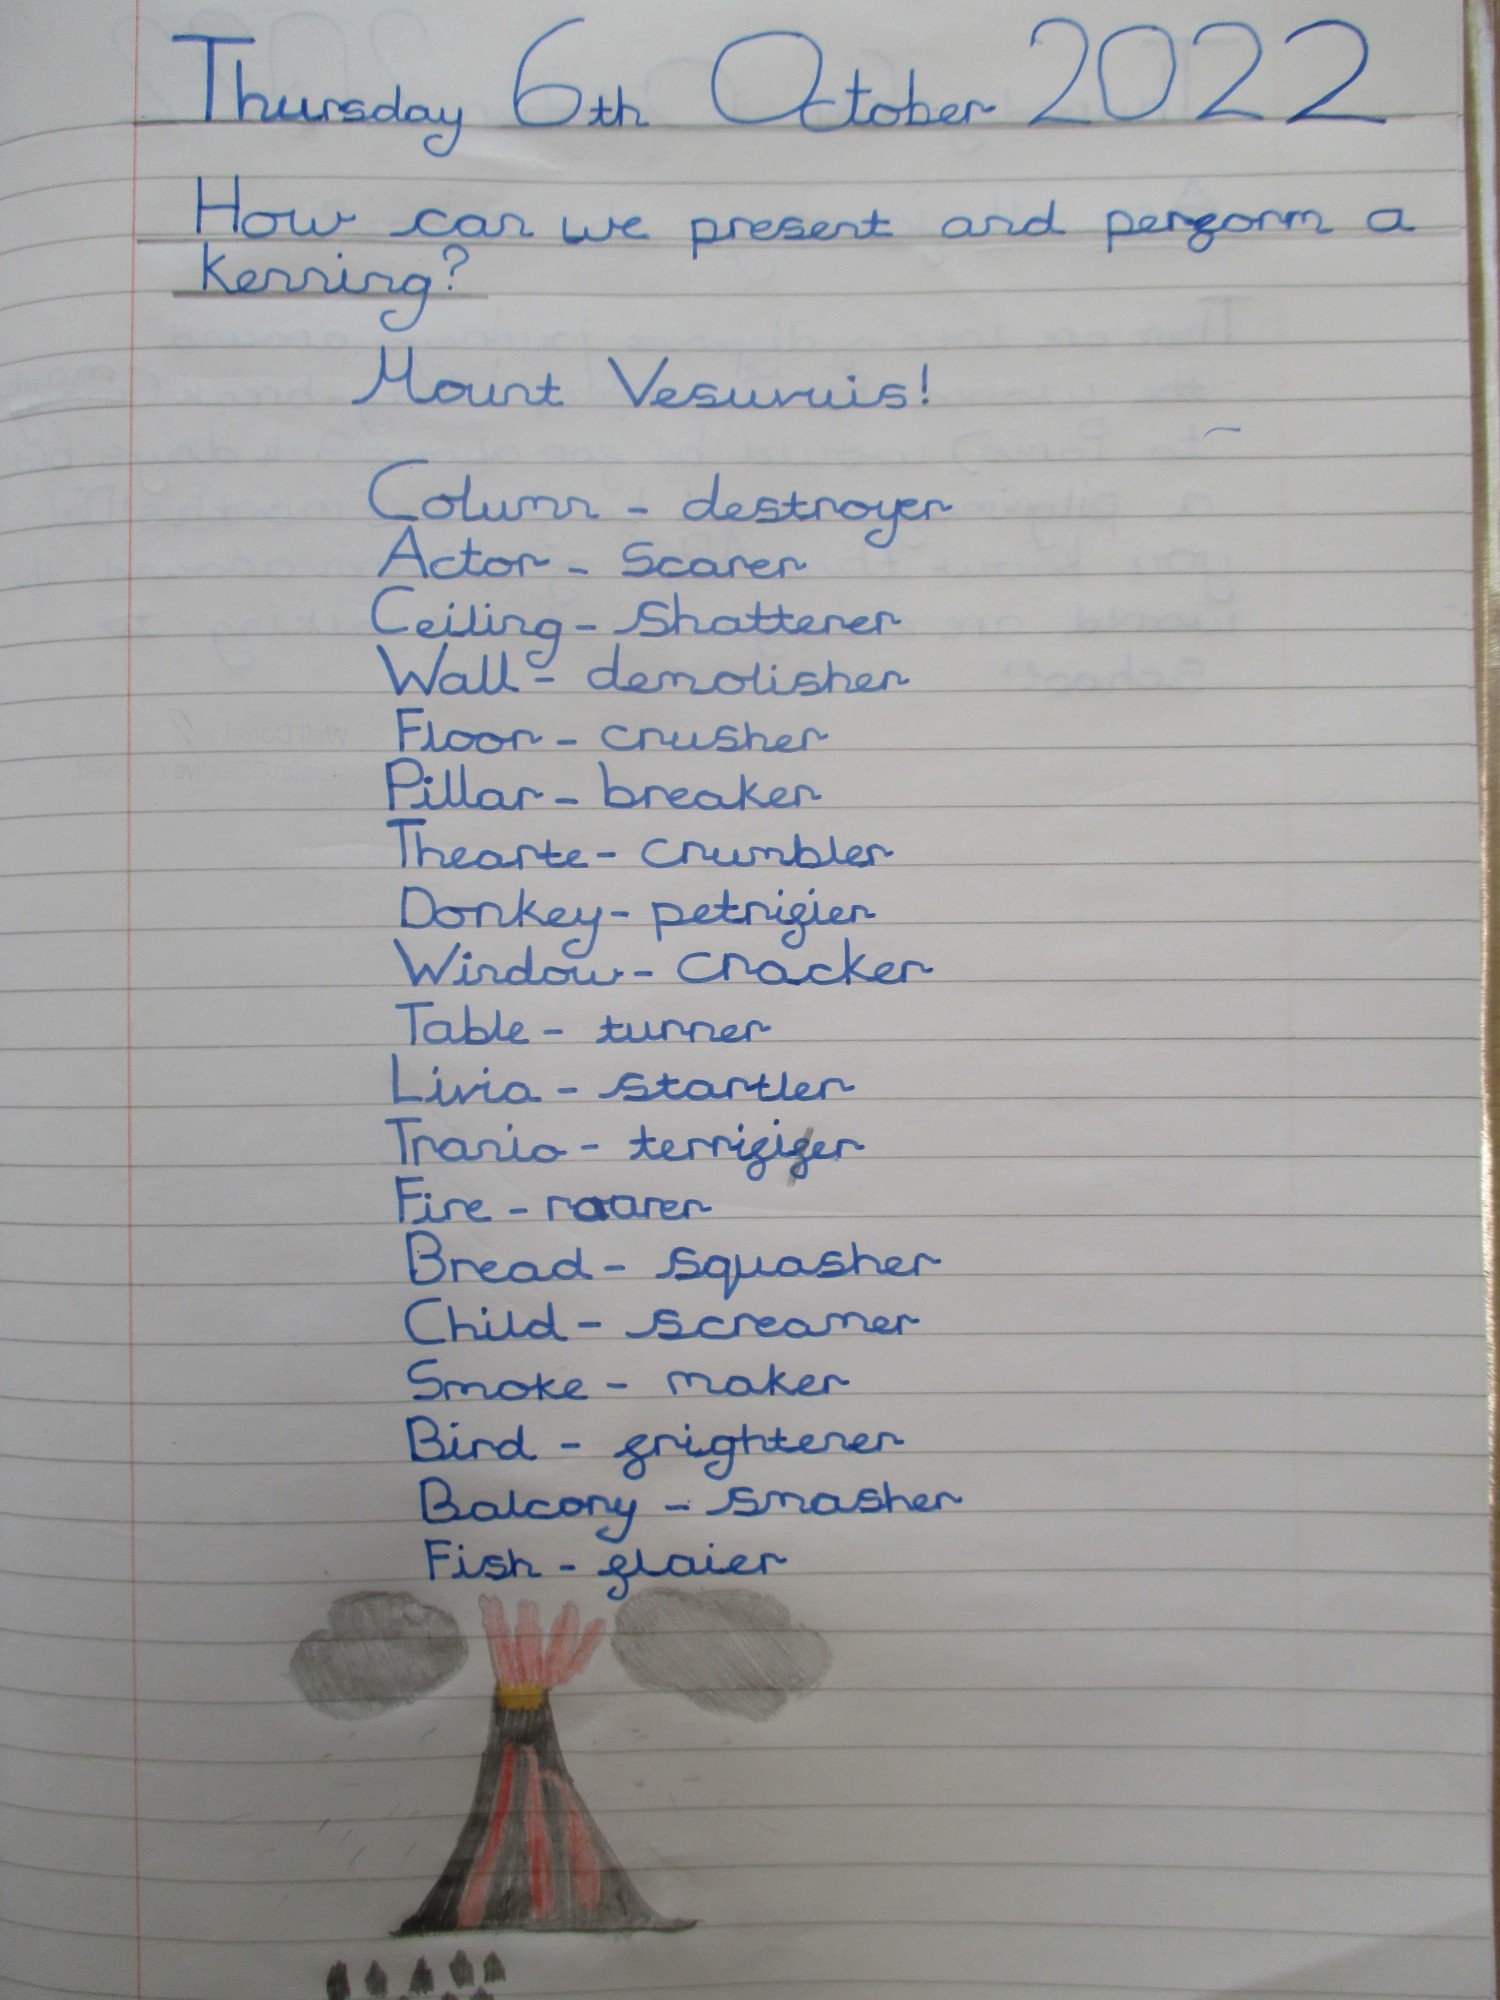 Thursday 6th October 2022
How can we present and perform a
kenning?
Mount Vesuvuis!
Column - destroyer
Actor - scarer
Ceiling - shatterer
Wall - demolisher
Floor - crusher
Pillar - breaker
Thearte - crumbler
Donkey - petrifier
Window - cracker
Table - turner
Livia - startler
Tranio - terrifier
Fire - roarer
Bread - squasher
Child - screamer
Smoke - maker
Bird - frightener
Balcony - smasher
Fish - flaier